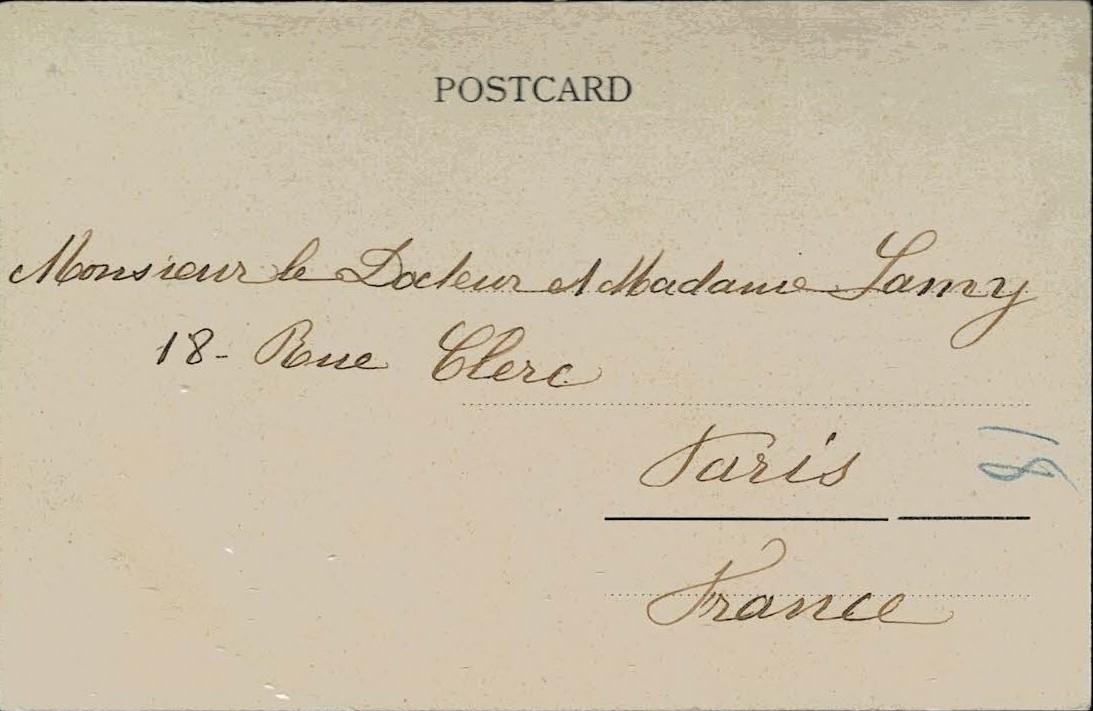 POSTCARD
Monsieur le Docteur et Madame Lamy
18 - Rue Clerc
Paris
18
France